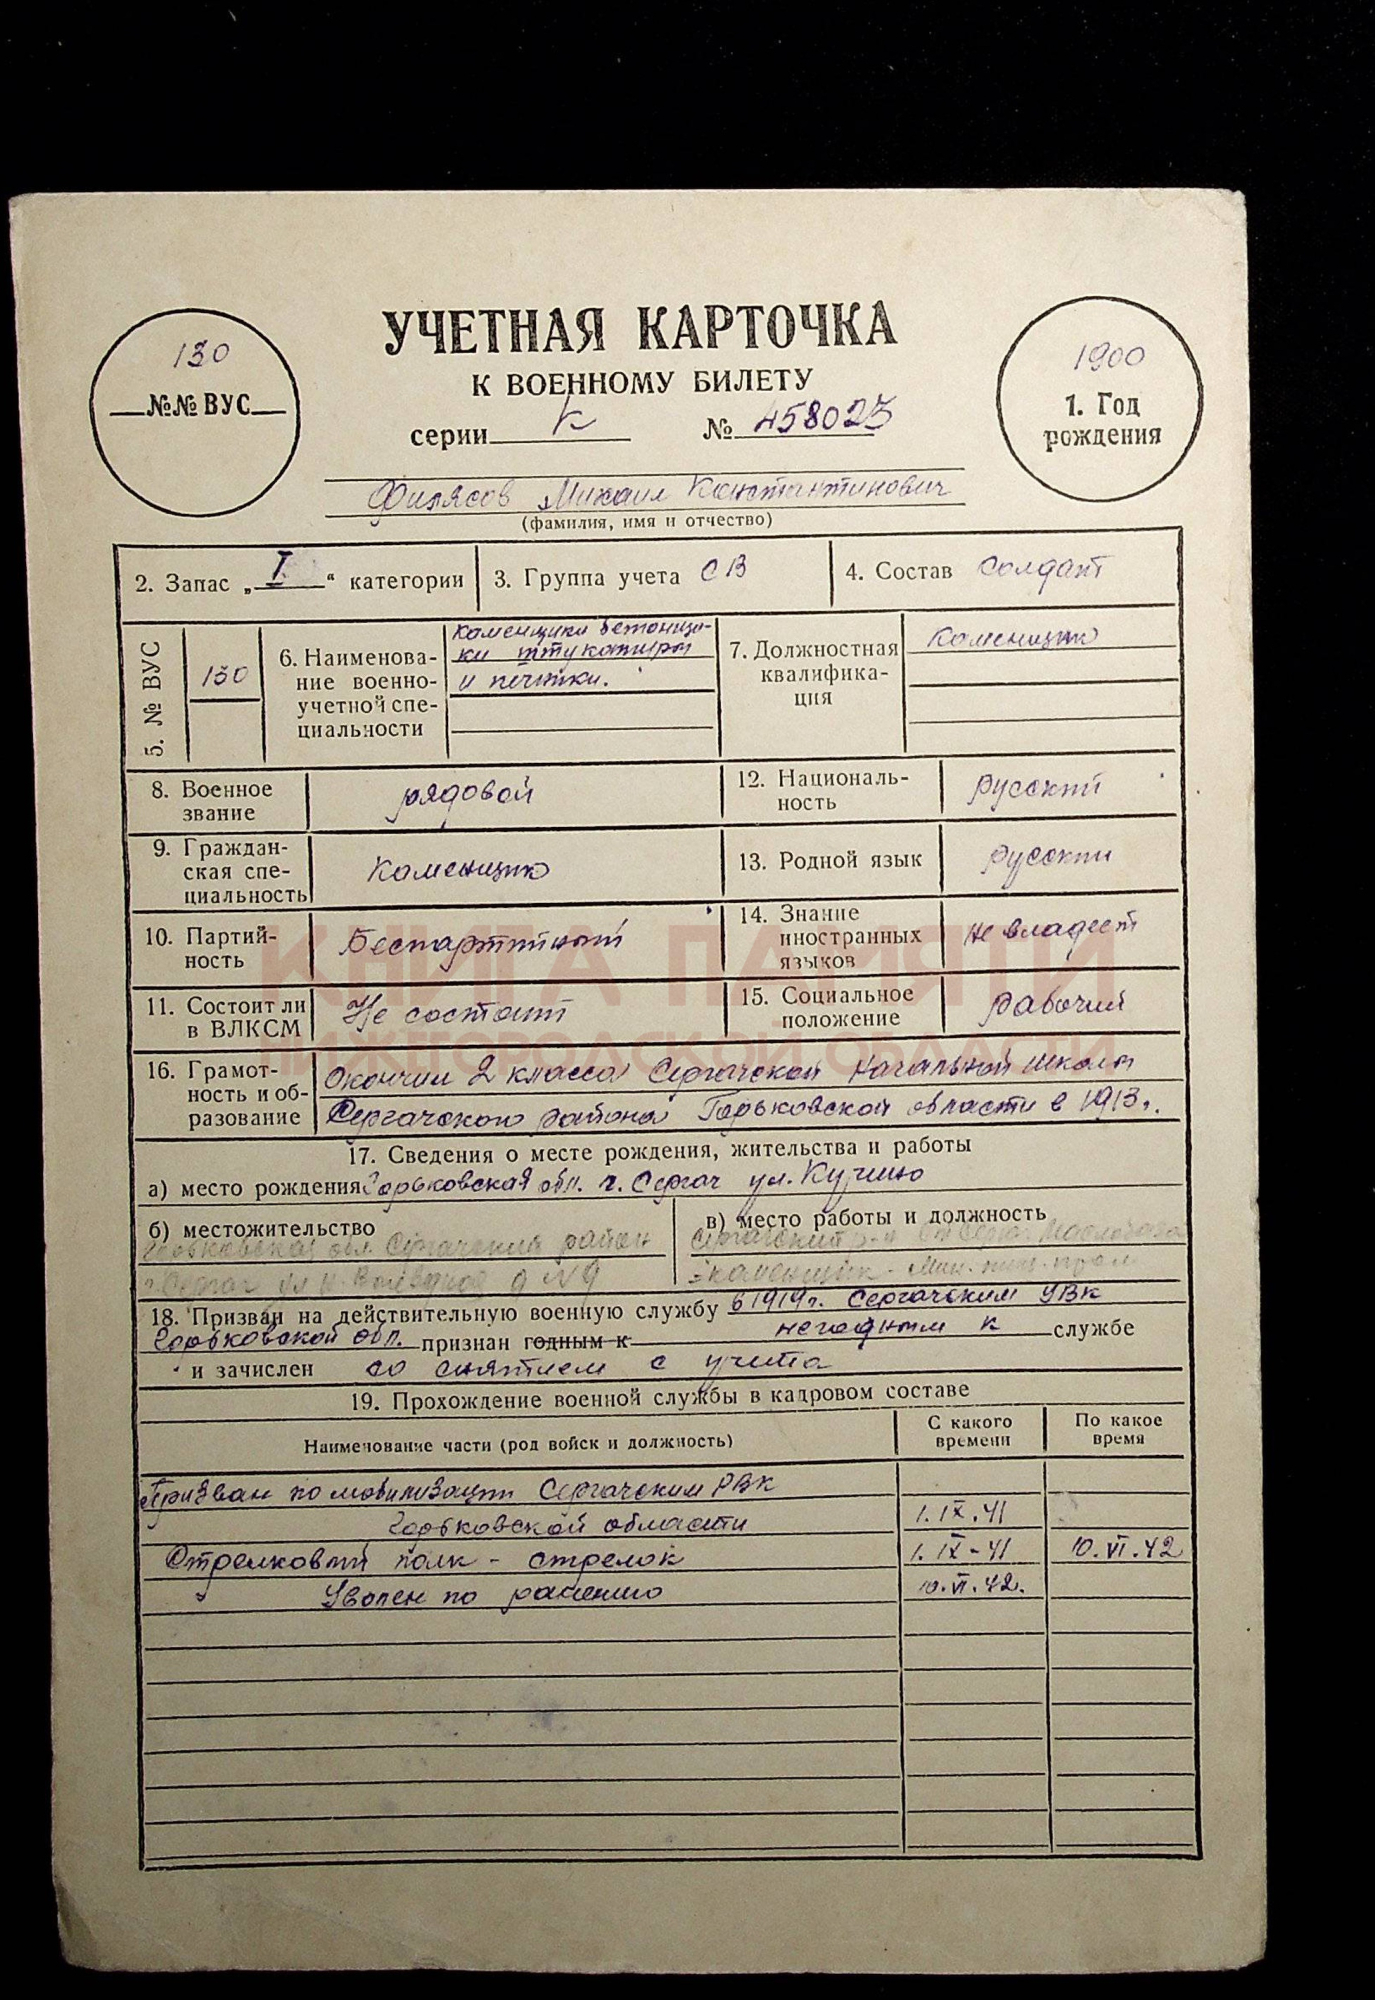 УЧЕТНАЯ КАРТОЧКА
К ВОЕННОМУ БИЛЕТУ
серии К № 458023
130
№№ ВУС
1900
1. Год
рождения
Филясов Михаил Константинович
(фамилия, имя и отчество)
2. Запас „I“ категории
3. Группа учета СВ
4. Состав Солдат
5. № ВУС
130
6. Наименова-
ние военно-
учетной спе-
циальности
Каменщики бетонщи-
ки штукатуры
и печники.
7. Должностная
квалифика-
ция
Каменщик
8. Военное
звание
рядовой
12. Националь-
ность
русский
9. Граждан-
ская спе-
циальность
Каменщик
13. Родной язык
русский
10. Партий-
ность
Беспартийный
14. Знание
иностранных
языков
Не владеет
11. Состоит ли
в ВЛКСМ
Не состоит
15. Социальное
положение
Рабочий
КНИГА ПАМЯТИ
НИЖЕГОРОДСКОЙ ОБЛАСТИ
16. Грамот-
ность и об-
разование
Окончил 2 класса Сергачской Начальной школы
Сергачского района Горьковской области в 1913г.
17. Сведения о месте рождения, жительства и работы
а) место рождения Горьковская обл. г. Сергач ул.
б) местожительство
Горьковская обл Сергачский район
г. Сергач ул д №9
в) место работы и должность
Сергачский р-н
каменщик
18. Призван на действительную военную службу в 1919г. Сергачским УВК
Горьковской обл. признан годным к негодным к службе
и зачислен со снятием с учета
19. Прохождение военной службы в кадровом составе
Наименование части (род войск и должность)
С какого
времени
По какое
время
Призван по мобилизации Сергачским РВК
Горьковской области 1.IX.41
Стрелковый полк - стрелок 1.IX-41 10.VI.42
Уволен по ранению 10.VI.42.